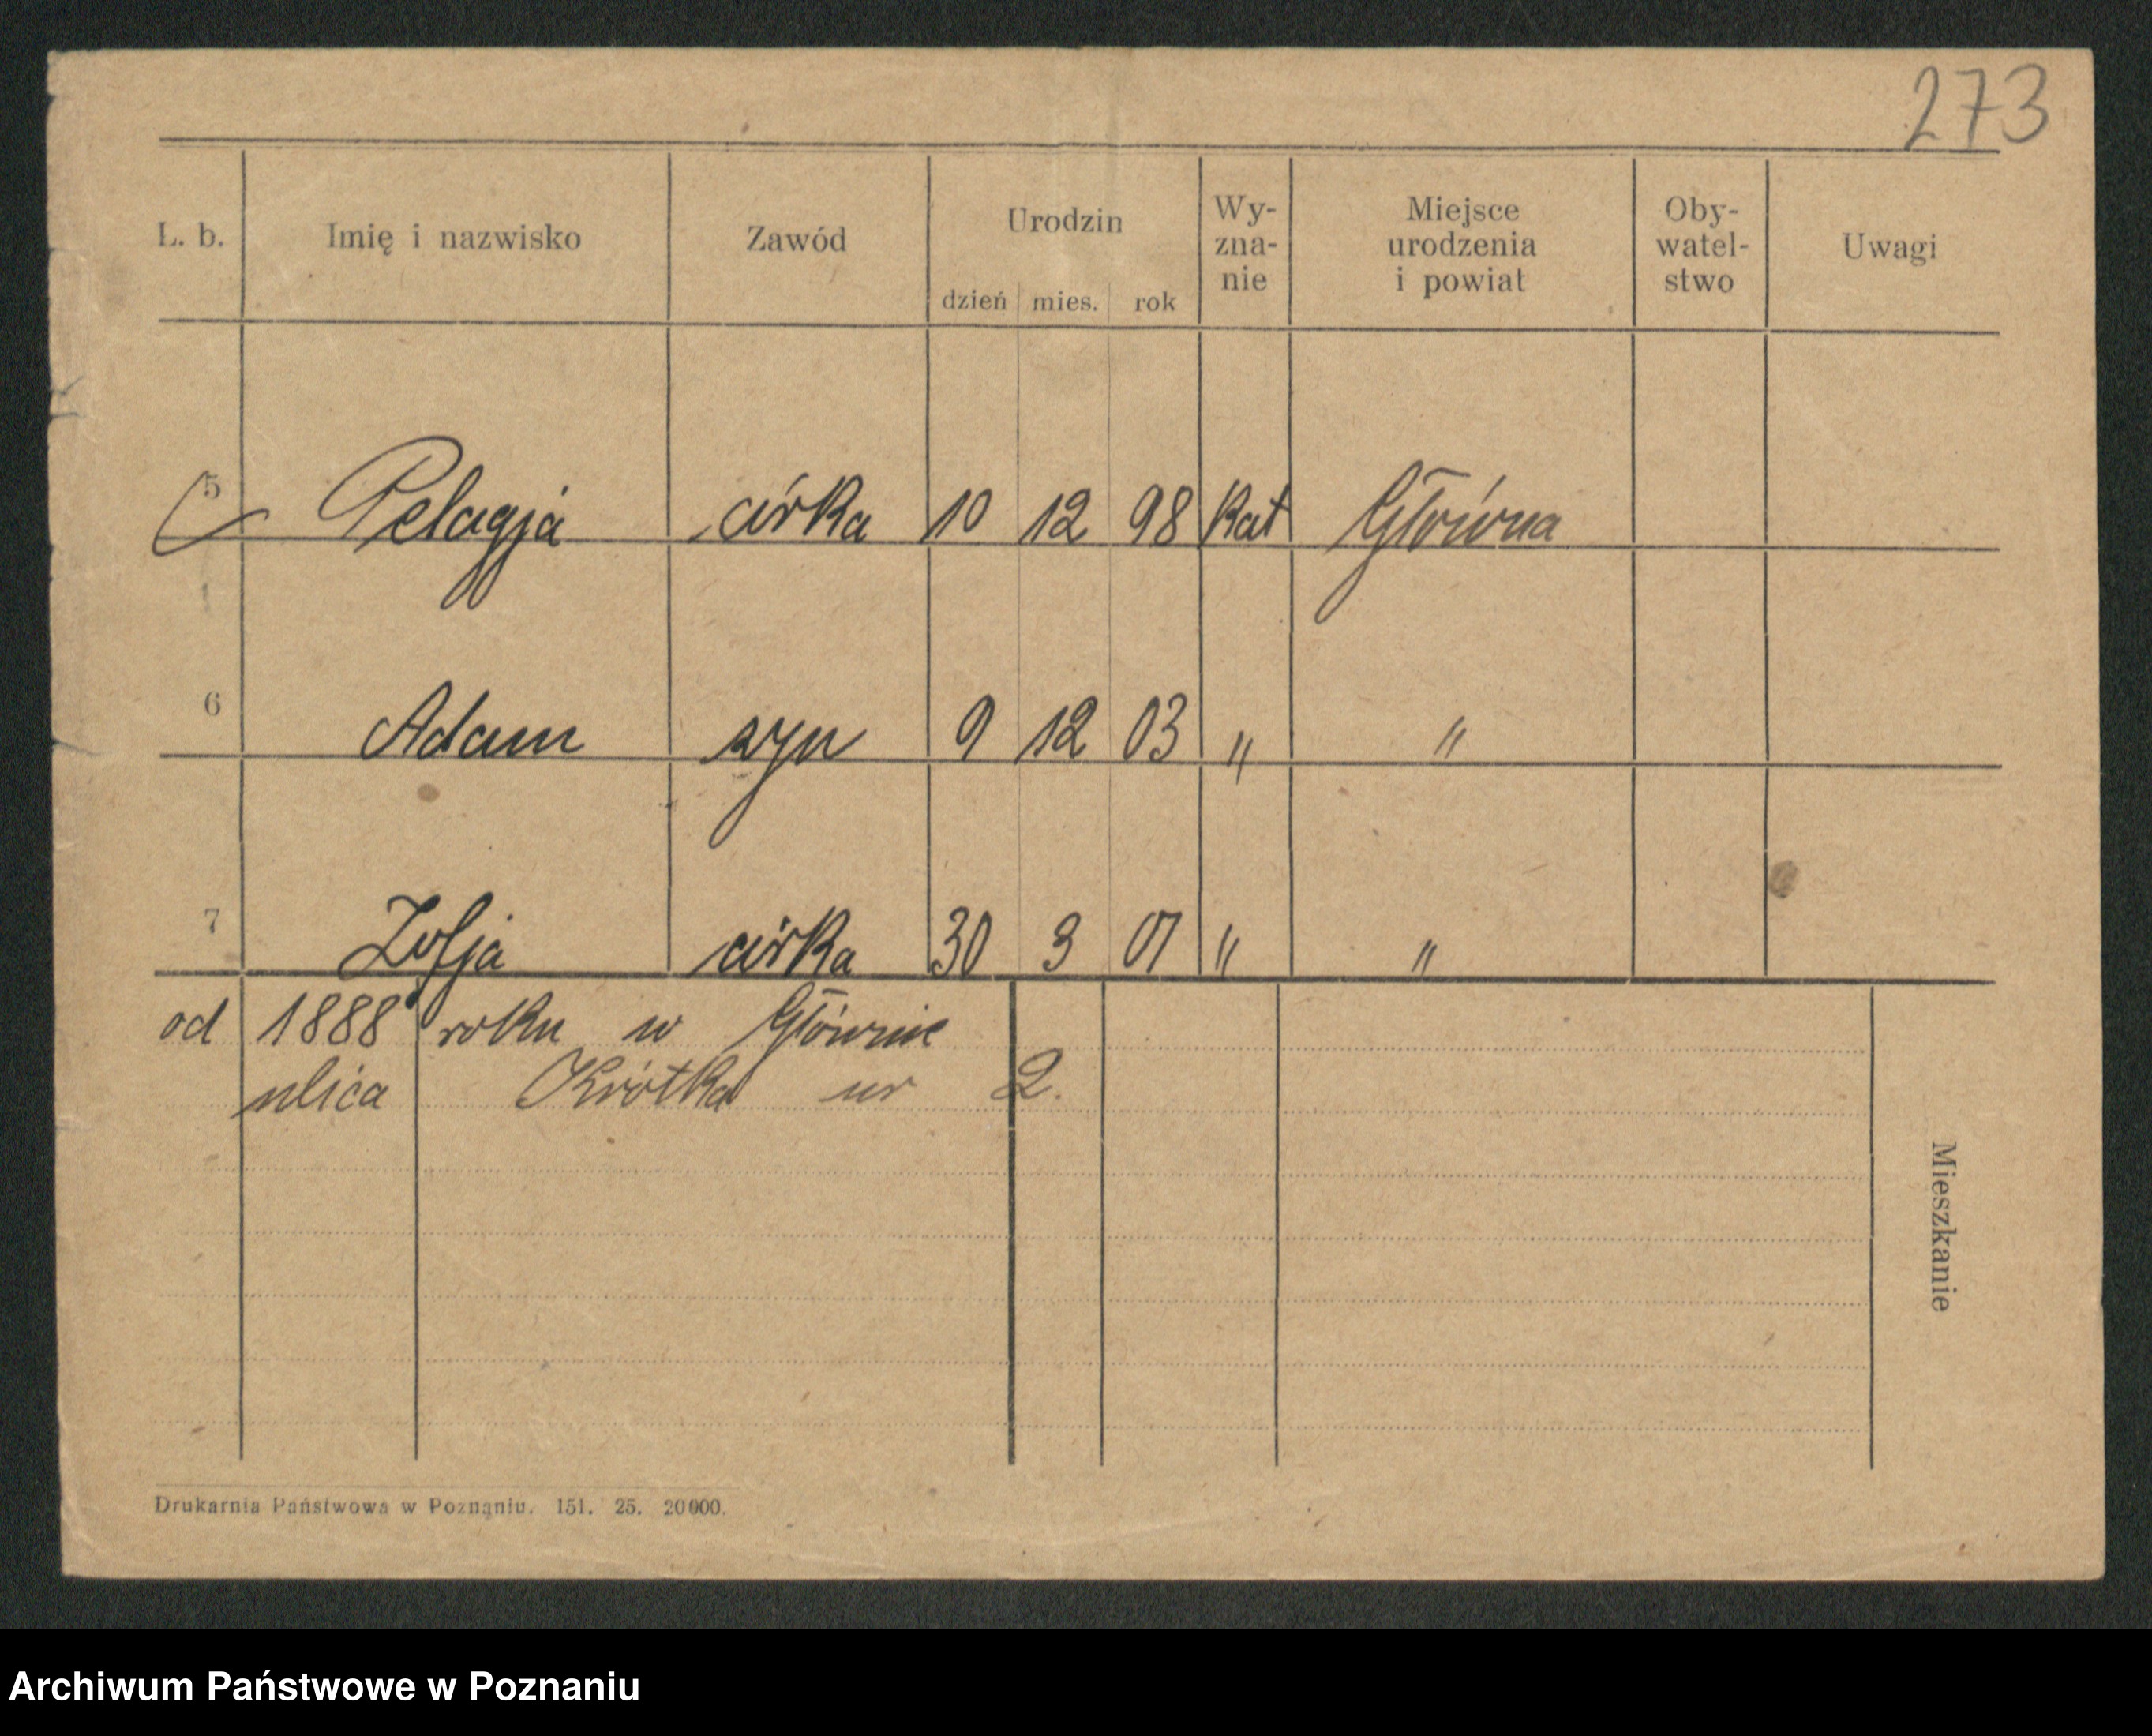 273
L. b. Imię i nazwisko Zawód Urodzin dzień mies. rok Wy-zna-nie Miejsce urodzenia i powiat Oby-watel-stwo Uwagi
5 Pelagja córka 10 12 98 Kat Główna
6 Adam syn 9 12 03 " "
7 Zofja córka 30 3 07 " "
od 1888 roku w Głównie
ulica Krótka nr 2.
Mieszkanie
Drukarnia Państwowa w Poznaniu. 151. 25. 20000.
Archiwum Państwowe w Poznaniu